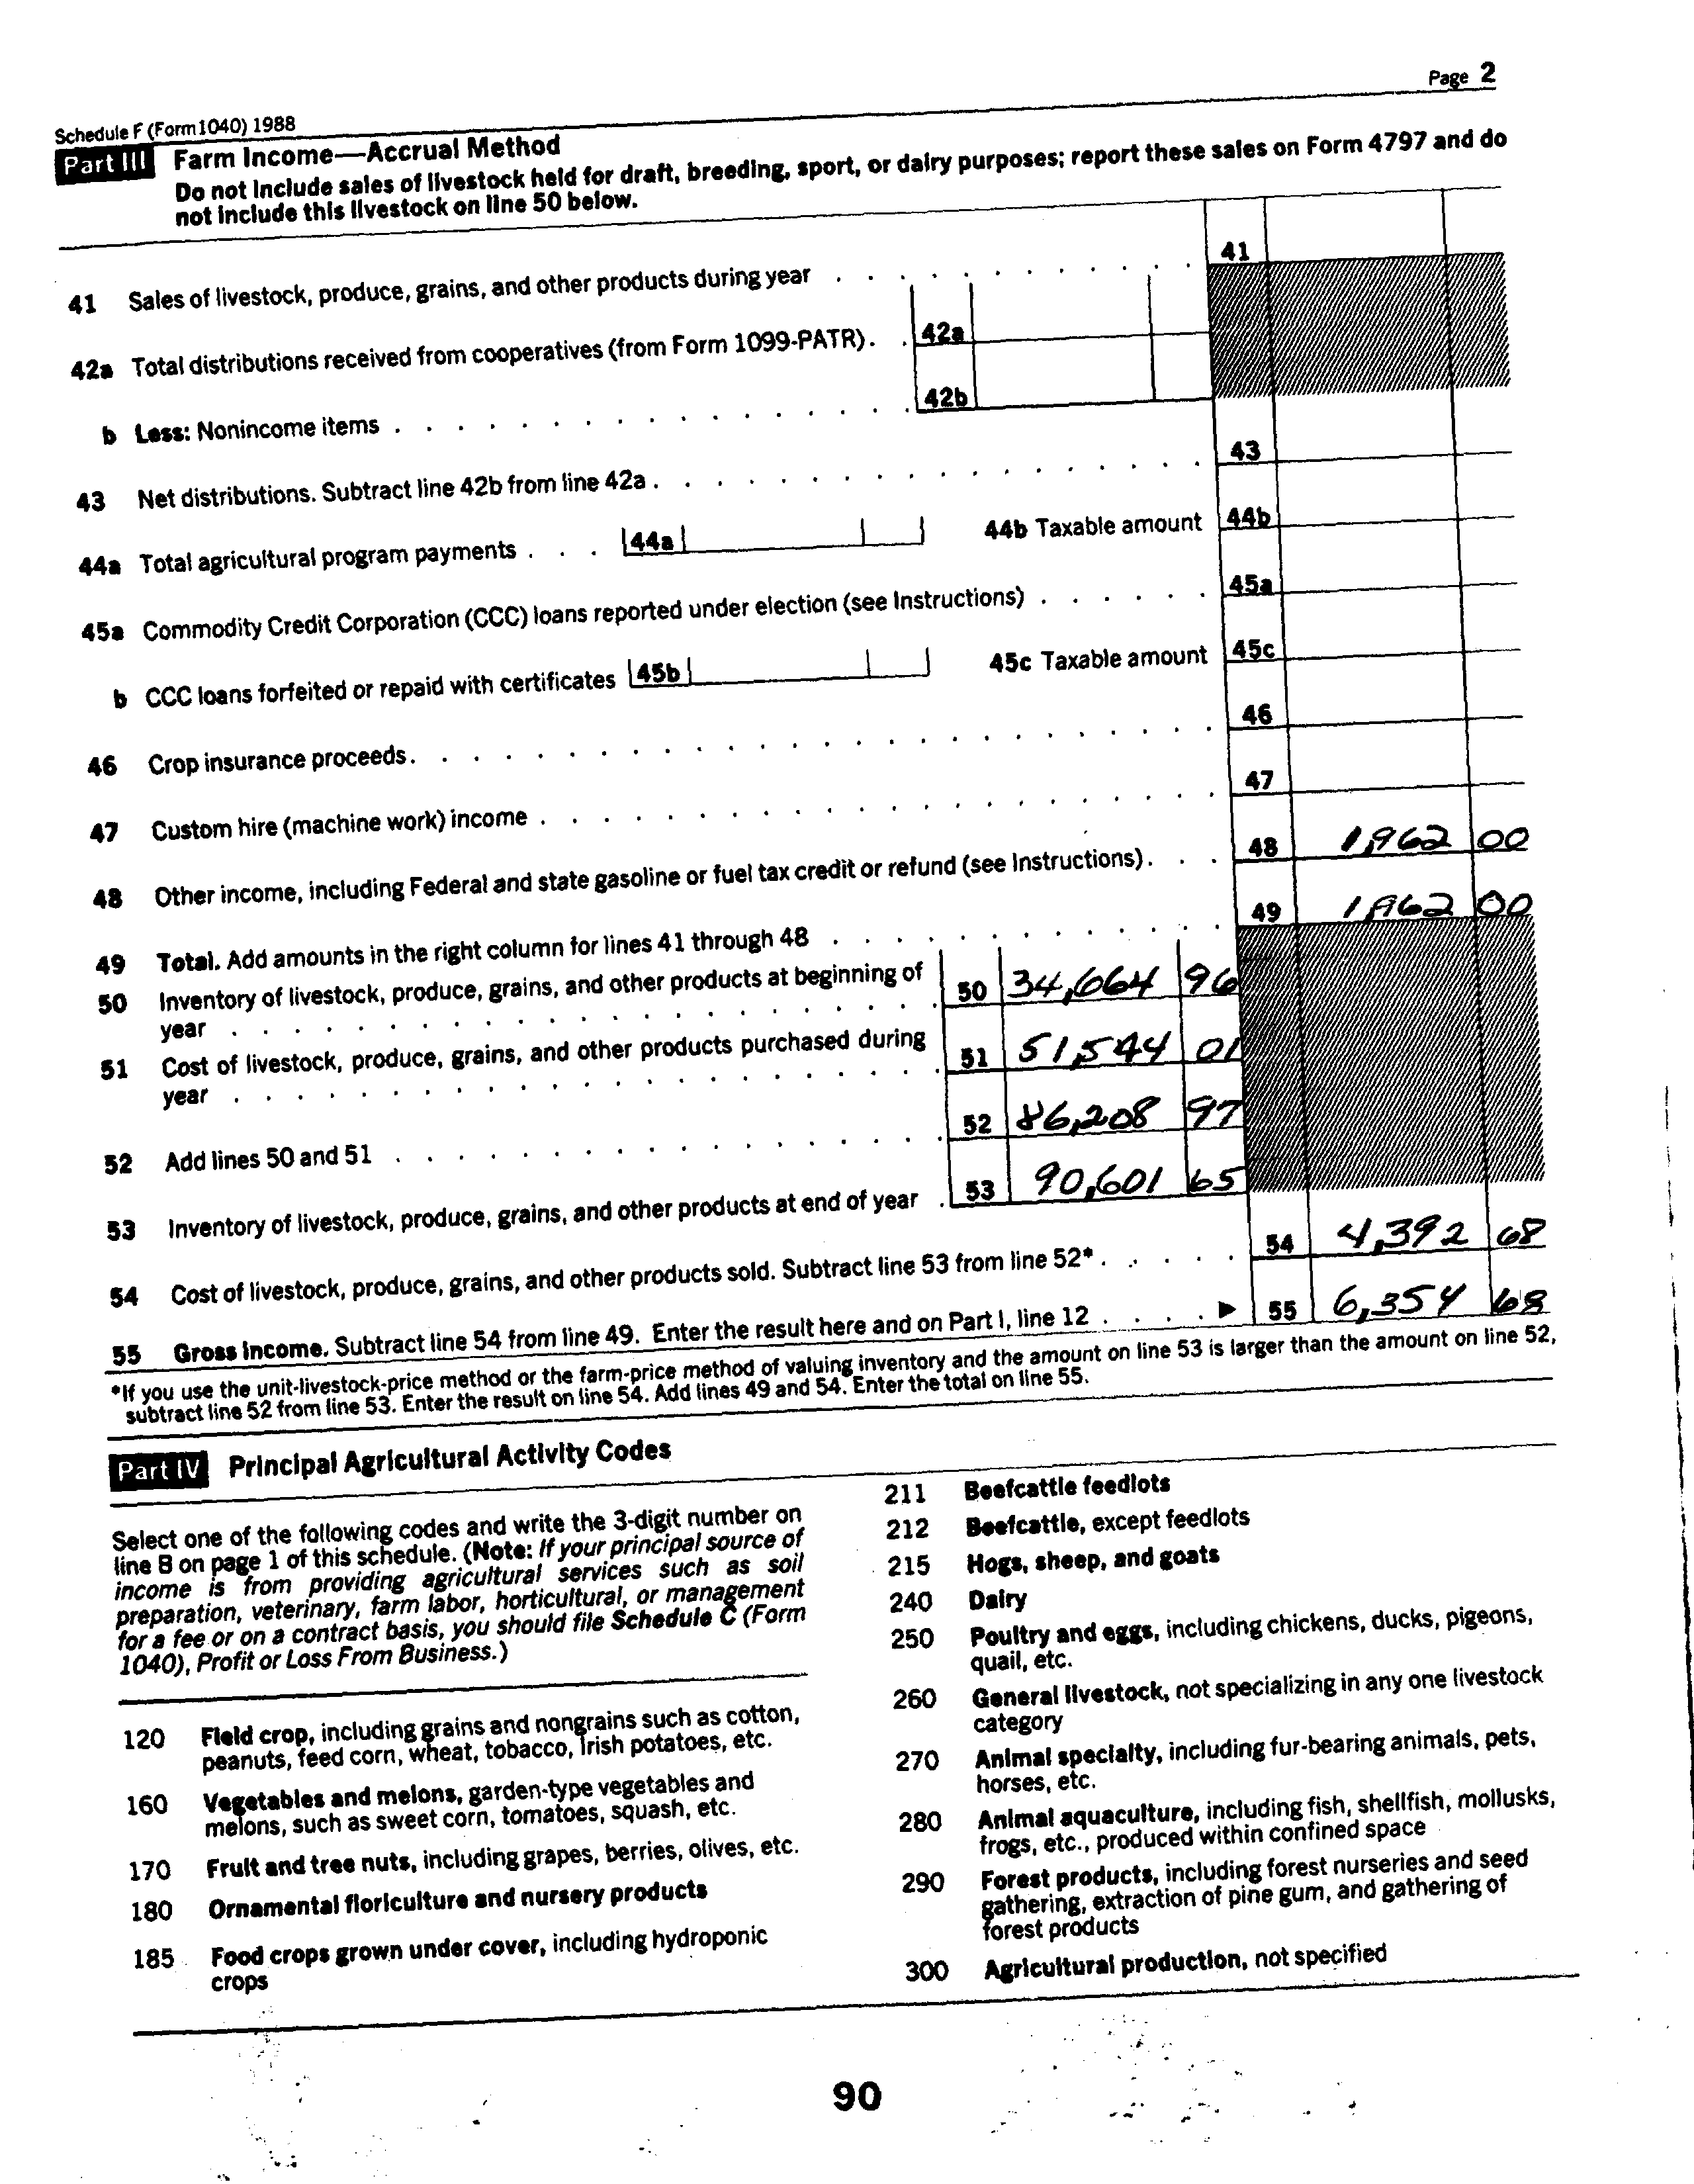 Page 2
Schedule F (Form 1040) 1988
Part III Farm Income—Accrual Method
Do not include sales of livestock held for draft, breeding, sport, or dairy purposes; report these sales on Form 4797 and do
not include this livestock on line 50 below.
41 Sales of livestock, produce, grains, and other products during year . . . . . . . . . . . . 41
42a Total distributions received from cooperatives (from Form 1099-PATR). . 42a
b Less: Nonincome items . . . . . . . . . . . . . . . . . 42b
43 Net distributions. Subtract line 42b from line 42a . . . . . . . . . . . . . . . . . . 43
44a Total agricultural program payments . . . 44a 44b Taxable amount 44b
45a Commodity Credit Corporation (CCC) loans reported under election (see Instructions) . . . . . . 45a
b CCC loans forfeited or repaid with certificates 45b 45c Taxable amount 45c
46 Crop insurance proceeds. . . . . . . . . . . . . . . . . . . . . . . . . . 46
47 Custom hire (machine work) income . . . . . . . . . . . . . . . . . . . . . . 47
48 Other income, including Federal and state gasoline or fuel tax credit or refund (see Instructions). . . 48 1,962 00
49 Total. Add amounts in the right column for lines 41 through 48 . . . . . . . . . . . . . 49 1,962 00
50 Inventory of livestock, produce, grains, and other products at beginning of
year . . . . . . . . . . . . . . . . . . . . . . . 50 34,664 96
51 Cost of livestock, produce, grains, and other products purchased during
year . . . . . . . . . . . . . . . . . . . . . . . 51 51,544 01
52 Add lines 50 and 51 . . . . . . . . . . . . . . . . . . 52 86,208 97
53 Inventory of livestock, produce, grains, and other products at end of year . 53 90,601 65
54 Cost of livestock, produce, grains, and other products sold. Subtract line 53 from line 52* . . . . . 54 4,392 68
55 Gross income. Subtract line 54 from line 49. Enter the result here and on Part I, line 12 . . . . ▶ 55 6,354 68
*If you use the unit-livestock-price method or the farm-price method of valuing inventory and the amount on line 53 is larger than the amount on line 52,
subtract line 52 from line 53. Enter the result on line 54. Add lines 49 and 54. Enter the total on line 55.
Part IV Principal Agricultural Activity Codes
Select one of the following codes and write the 3-digit number on
line B on page 1 of this schedule. (Note: If your principal source of
income is from providing agricultural services such as soil
preparation, veterinary, farm labor, horticultural, or management
for a fee or on a contract basis, you should file Schedule C (Form
1040), Profit or Loss From Business.)
120 Field crop, including grains and nongrains such as cotton,
peanuts, feed corn, wheat, tobacco, Irish potatoes, etc.
160 Vegetables and melons, garden-type vegetables and
melons, such as sweet corn, tomatoes, squash, etc.
170 Fruit and tree nuts, including grapes, berries, olives, etc.
180 Ornamental floriculture and nursery products
185 Food crops grown under cover, including hydroponic
crops
211 Beefcattle feedlots
212 Beefcattle, except feedlots
215 Hogs, sheep, and goats
240 Dairy
250 Poultry and eggs, including chickens, ducks, pigeons,
quail, etc.
260 General livestock, not specializing in any one livestock
category
270 Animal specialty, including fur-bearing animals, pets,
horses, etc.
280 Animal aquaculture, including fish, shellfish, mollusks,
frogs, etc., produced within confined space
290 Forest products, including forest nurseries and seed
gathering, extraction of pine gum, and gathering of
forest products
300 Agricultural production, not specified
90